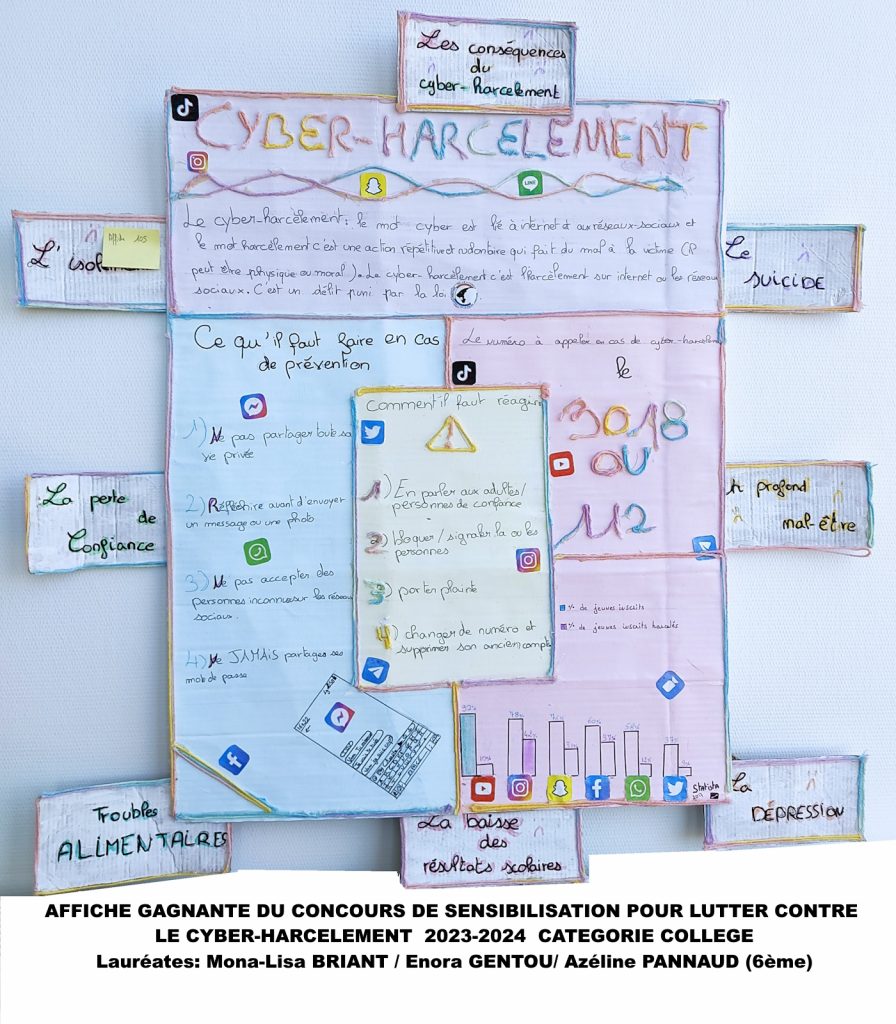 Les conséquences
du
cyber-harcelement
CYBER-HARCELEMENT
LINE
Le cyber-harcèlement: le mot cyber est lié à internet et aux réseaux-sociaux et
le mot harcèlement c'est une action répétitive et volontaire qui fait du mal à la victime (
peut être physique ou moral). Le cyber-harcèlement c'est l'harcèlement sur internet ou les réseaux
sociaux. C'est un délit puni par la loi
L'
105
Le
SUICIDE
Ce qu'il faut faire en cas
de prévention
1) Ne pas partager toute sa
vie privée
2) Réfléchire avant d'envoyer
un message ou une photo
3) Ne pas accepter des
personnes inconnue sur les réseaux
sociaux.
4) Ne JAMAIS partages ses
mot de passe
Comment il faut réagire
1) En parler aux adultes/
personnes de confiance
2) bloquer/signaler la ou les
personnes
3) porter plainte
4) changer de numéro et
supprimer son ancien compte
Le numéro à appeler en cas de cyber-harcèlement
le
3018
OU
112
% de jeunes inscrits
% de jeunes inscrits harcelés
92%
78%
60%
37%
Statista
La perte
de
Confiance
profond
mal-être
Troubles
ALIMENTAIRES
La baisse
des
résultats scolaires
La
DÉPRESSION
AFFICHE GAGNANTE DU CONCOURS DE SENSIBILISATION POUR LUTTER CONTRE
LE CYBER-HARCELEMENT 2023-2024 CATEGORIE COLLEGE
Lauréates: Mona-Lisa BRIANT / Enora GENTOU/ Azéline PANNAUD (6ème)